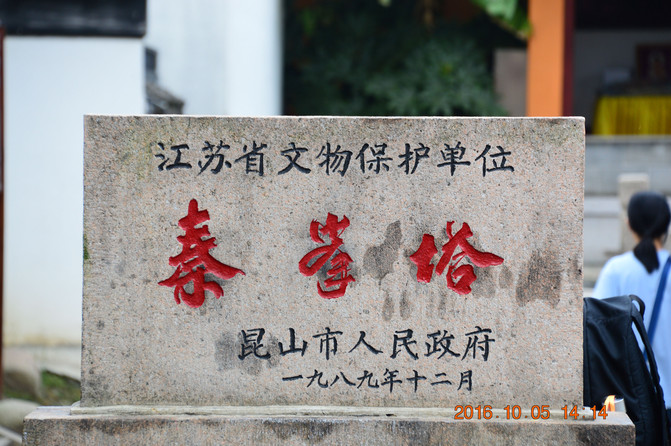 江苏省文物保护单位
秦峯塔
昆山市人民政府
一九八九年十二月
2016.10.05 14:14